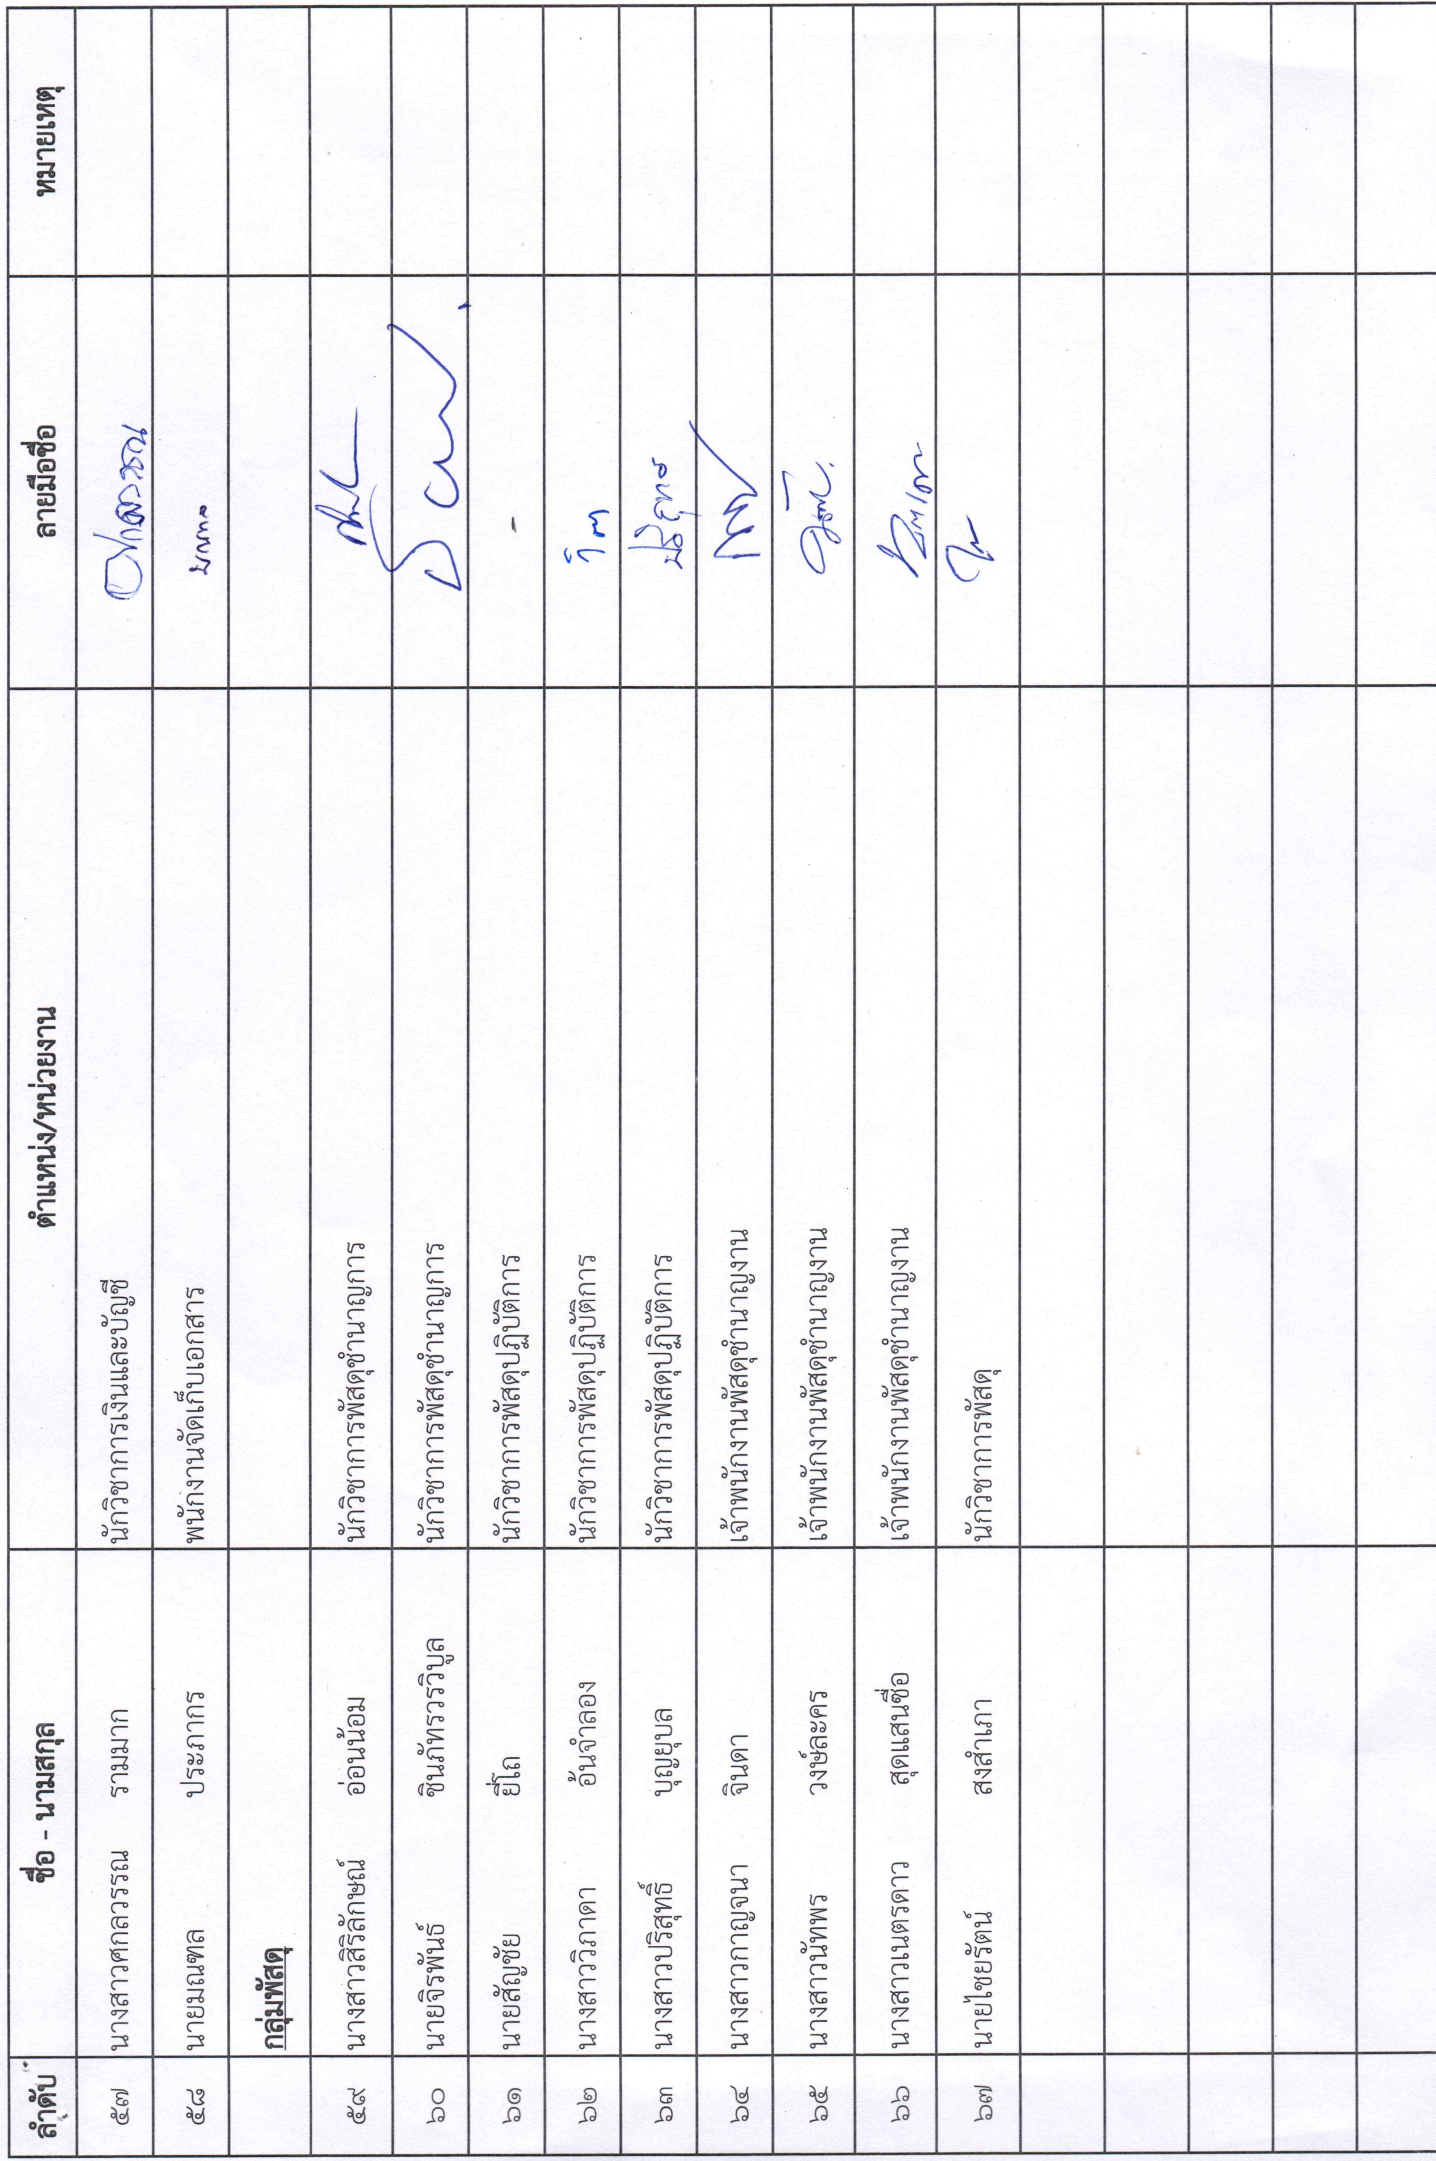 ลำดับ ชื่อ - นามสกุล ตำแหน่ง/หน่วยงาน ลายมือชื่อ หมายเหตุ
๕๗ นางสาวศกลวรรณ รามมาก นักวิชาการเงินและบัญชี
๕๘ นายมณฑล ประภากร พนักงานจัดเก็บเอกสาร มณฑล
กลุ่มพัสดุ
๕๙ นางสาวสิริลักษณ์ อ่อนน้อม นักวิชาการพัสดุชำนาญการ
๖๐ นายจิรพันธ์ ชินภัทรวรวิบูล นักวิชาการพัสดุชำนาญการ
๖๑ นายสัญชัย ยี่โถ นักวิชาการพัสดุปฏิบัติการ -
๖๒ นางสาววิภาดา อ้นจำลอง นักวิชาการพัสดุปฏิบัติการ
๖๓ นางสาวปริสุทธิ์ บุญยุบล นักวิชาการพัสดุปฏิบัติการ
๖๔ นางสาวกาญจนา จินดา เจ้าพนักงานพัสดุชำนาญงาน
๖๕ นางสาวนัทพร วงษ์ละคร เจ้าพนักงานพัสดุชำนาญงาน
๖๖ นางสาวเนตรดาว สุดแสนซื่อ เจ้าพนักงานพัสดุชำนาญงาน
๖๗ นายไชยรัตน์ สงสำเภา นักวิชาการพัสดุ